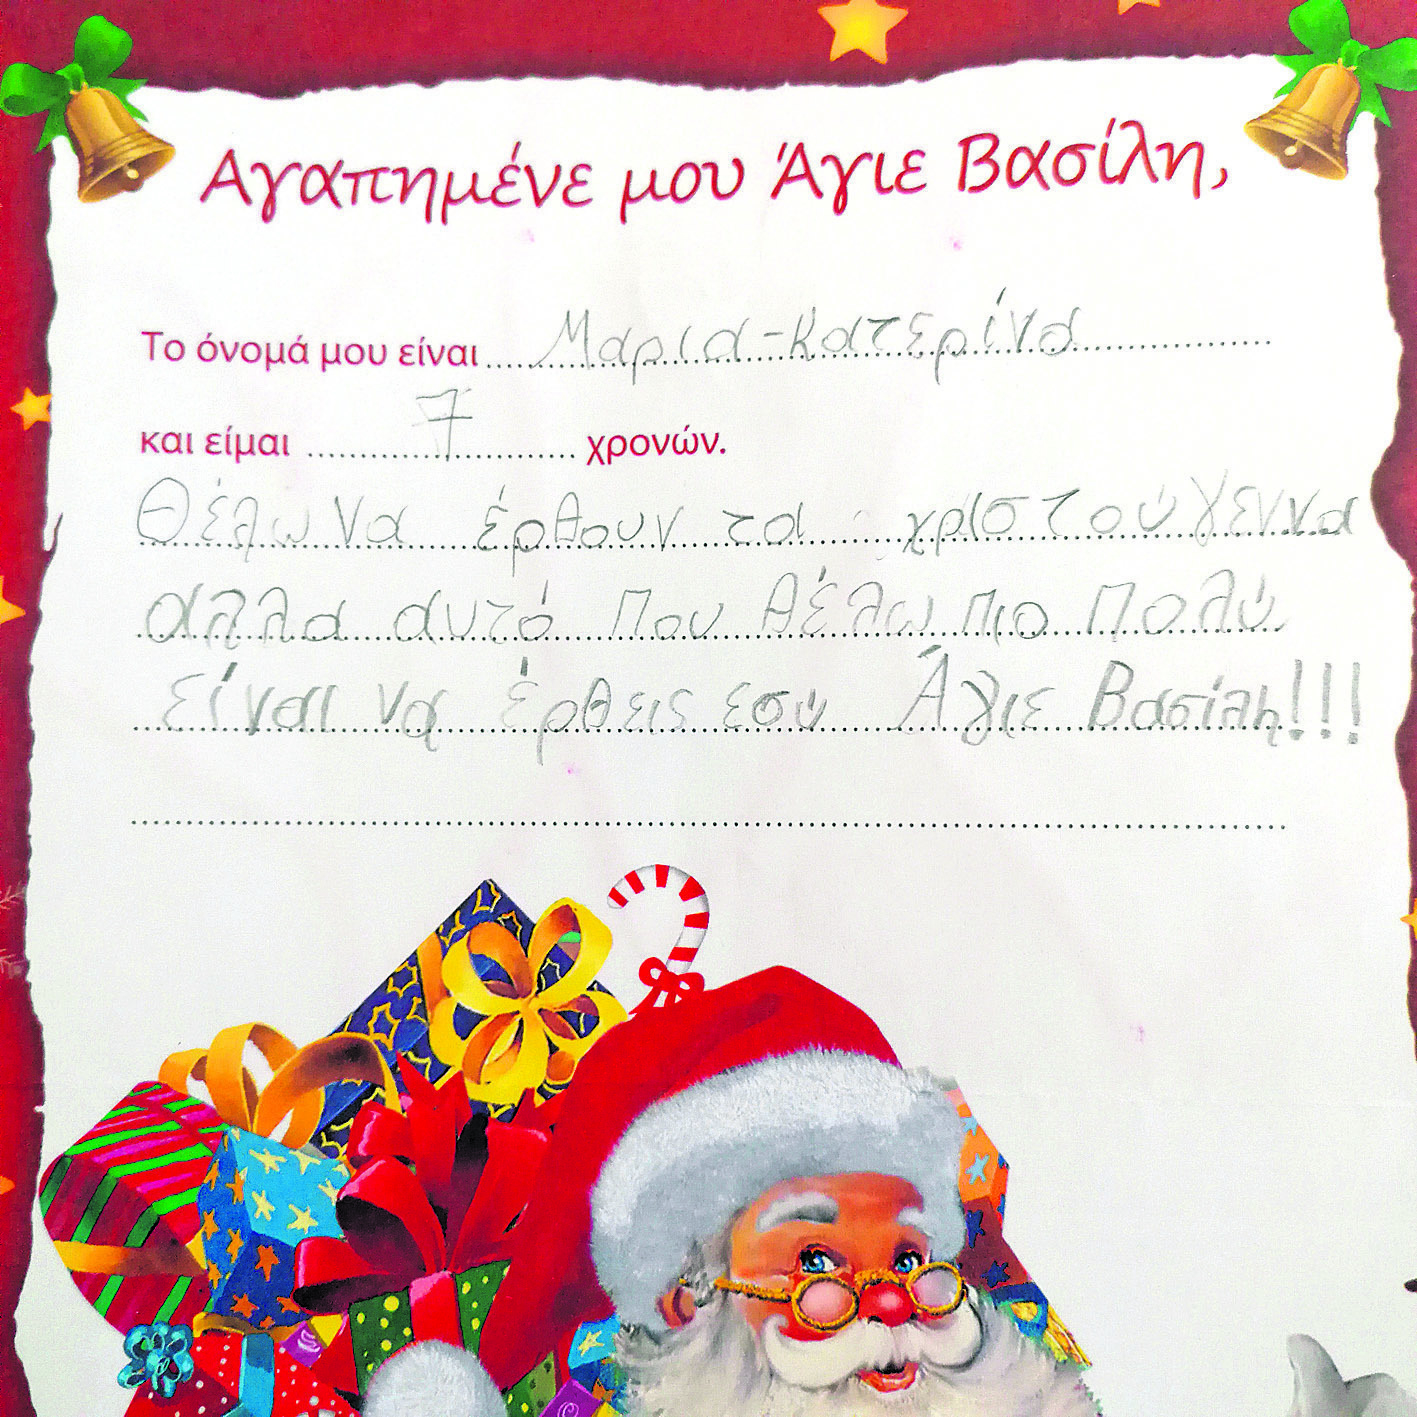 Αγαπημένε μου Άγιε Βασίλη,
Το όνομά μου είναι Μαρια-Κατερίνα
και είμαι 7 χρονών.
Θέλω να έρθουν τα χριστούγεννα
αλλα αυτό που θέλω πιο πολύ
είναι να έρθεις εσυ Άγιε Βασίλη!!!